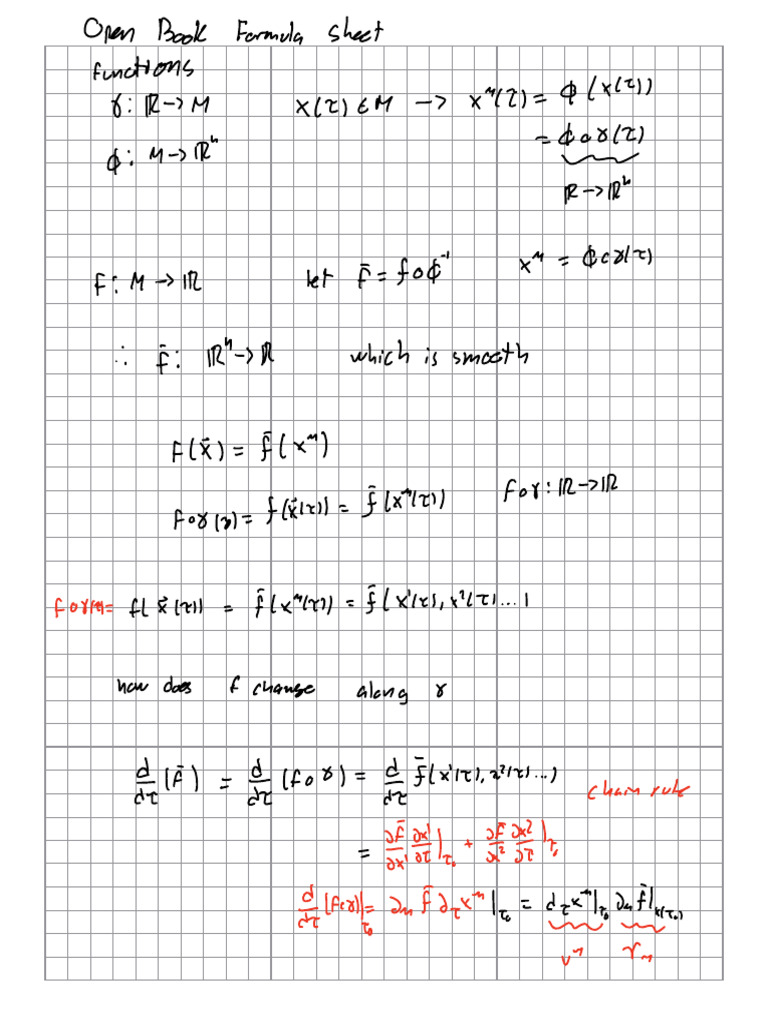 Open Book Formula sheet
functions
γ: ℝ → M    x(τ) ∈ M → x^μ(τ) = ϕ(x(τ))
= ϕ∘γ(τ)
ϕ: M → ℝⁿ
ℝ → ℝⁿ
F: M → ℝ    let f̄ = f∘ϕ⁻¹    x^μ = ϕ∘γ(τ)
∴ f̄: ℝⁿ → ℝ    which is smooth
f(x⃗) = f̄(x^μ)
f∘γ(τ) = f(x⃗(τ)) = f̄(x^μ(τ))    f∘γ: ℝ → ℝ
f∘γ(τ) = f(x⃗(τ)) = f̄(x^μ(τ)) = f̄(x¹(τ), x²(τ)...)
how does f change along γ
d/dτ (f̄) = d/dτ (f∘γ) = d/dτ f̄(x¹(τ), x²(τ)...)
chain rule
= ∂f̄/∂x¹ ∂x¹/∂τ |τ₀ + ∂f̄/∂x² ∂x²/∂τ |τ₀
d/dτ (f∘γ)|τ₀ = ∂μ f̄ ∂τ x^μ |τ₀ = d_τ x^μ |τ₀ ∂μ f̄ |x(τ₀)
v^μ